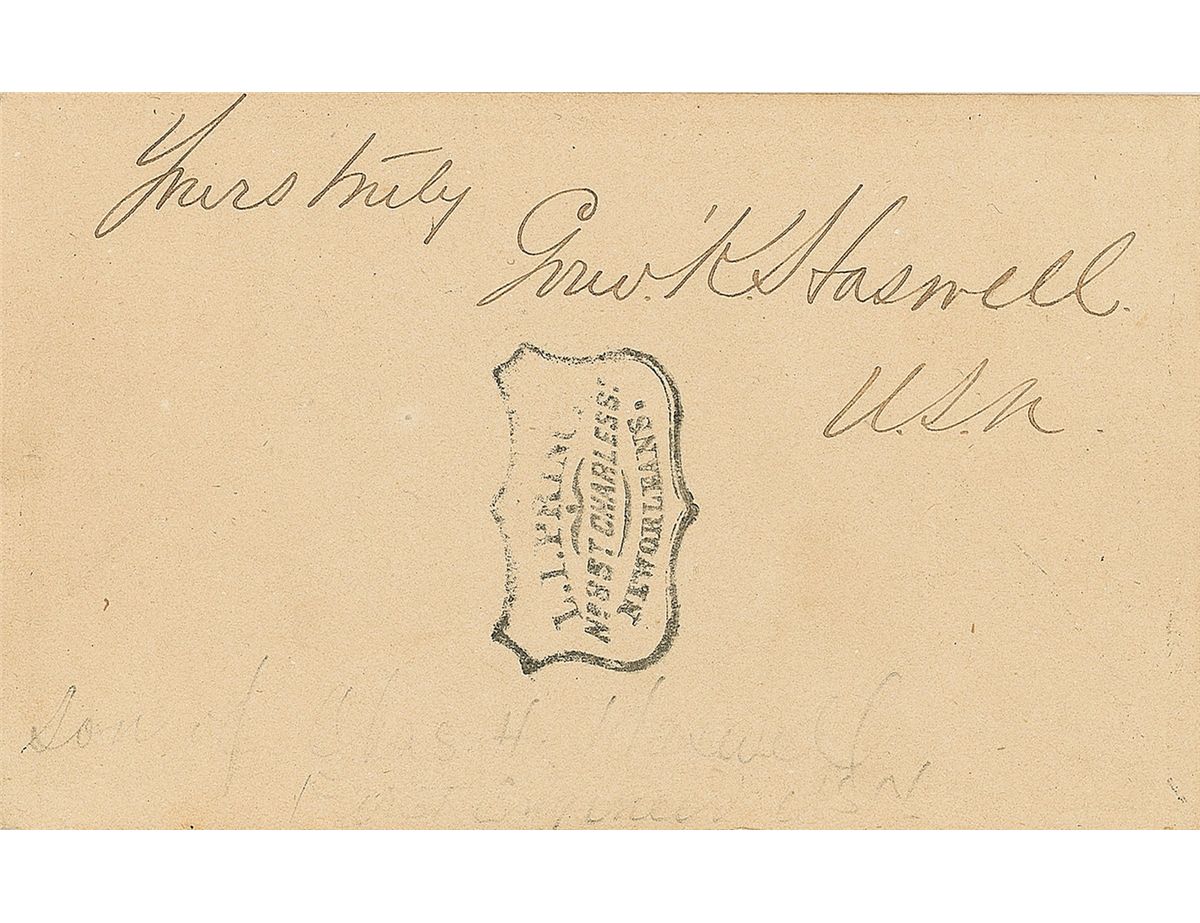 Yours truly
Gouv. K. Haswell.
U.S.N.
L. I. PRINC
No 8 ST CHARLES S.
NEW ORLEANS.
Son of Chas H. Haswell
Engineer USN